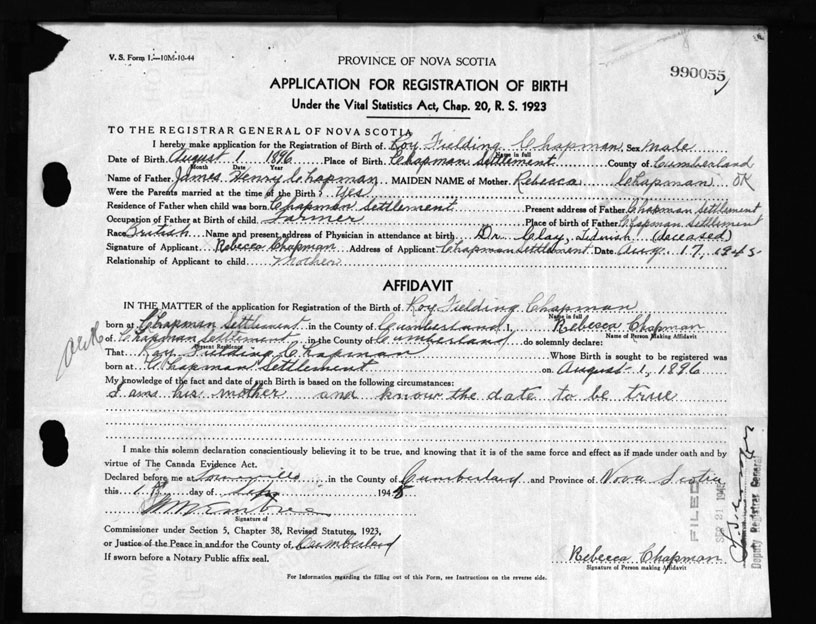 V. S. Form 1.—10M-10-44
PROVINCE OF NOVA SCOTIA
990055
APPLICATION FOR REGISTRATION OF BIRTH
Under the Vital Statistics Act, Chap. 20, R. S. 1923
TO THE REGISTRAR GENERAL OF NOVA SCOTIA
I hereby make application for the Registration of Birth of Roy Fielding Chapman Sex Male
Name in full
Date of Birth August 1 1896 Place of Birth Chapman Settlement County of Cumberland
Month Date Year
Name of Father James Henry Chapman MAIDEN NAME of Mother Rebecca Chapman OK
Were the Parents married at the time of the Birth? Yes
Residence of Father when child was born Chapman Settlement Present address of Father Chapman Settlement
Occupation of Father at Birth of child Farmer Place of birth of Father Chapman Settlement
Race British Name and present address of Physician in attendance at birth Dr. Clay, Tidnish (deceased)
Signature of Applicant Rebecca Chapman Address of Applicant Chapman Settlement Date Aug. 17, 1945
Relationship of Applicant to child Mother
AFFIDAVIT
IN THE MATTER of the application for Registration of the Birth of Roy Fielding Chapman
Name in full
born at Chapman Settlement in the County of Cumberland I, Rebecca Chapman
Name of Person Making Affidavit
of Chapman Settlement, in the County of Cumberland do solemnly declare:
Present Residence
That Roy Fielding Chapman Whose Birth is sought to be registered was
born at Chapman Settlement on August 1, 1896
My knowledge of the fact and date of such Birth is based on the following circumstances:
I am his mother and know the date to be true
I make this solemn declaration conscientiously believing it to be true, and knowing that it is of the same force and effect as if made under oath and by
virtue of The Canada Evidence Act.
Declared before me at in the County of Cumberland and Province of Nova Scotia
this day of Sept 1945
Signature of
Commissioner under Section 5, Chapter 38, Revised Statutes, 1923,
or Justice of the Peace in and for the County of Cumberland
If sworn before a Notary Public affix seal.
Rebecca Chapman
Signature of Person making Affidavit
FILED
SEP 21 1945
Deputy Registrar General
For Information regarding the filling out of this Form, see Instructions on the reverse side.